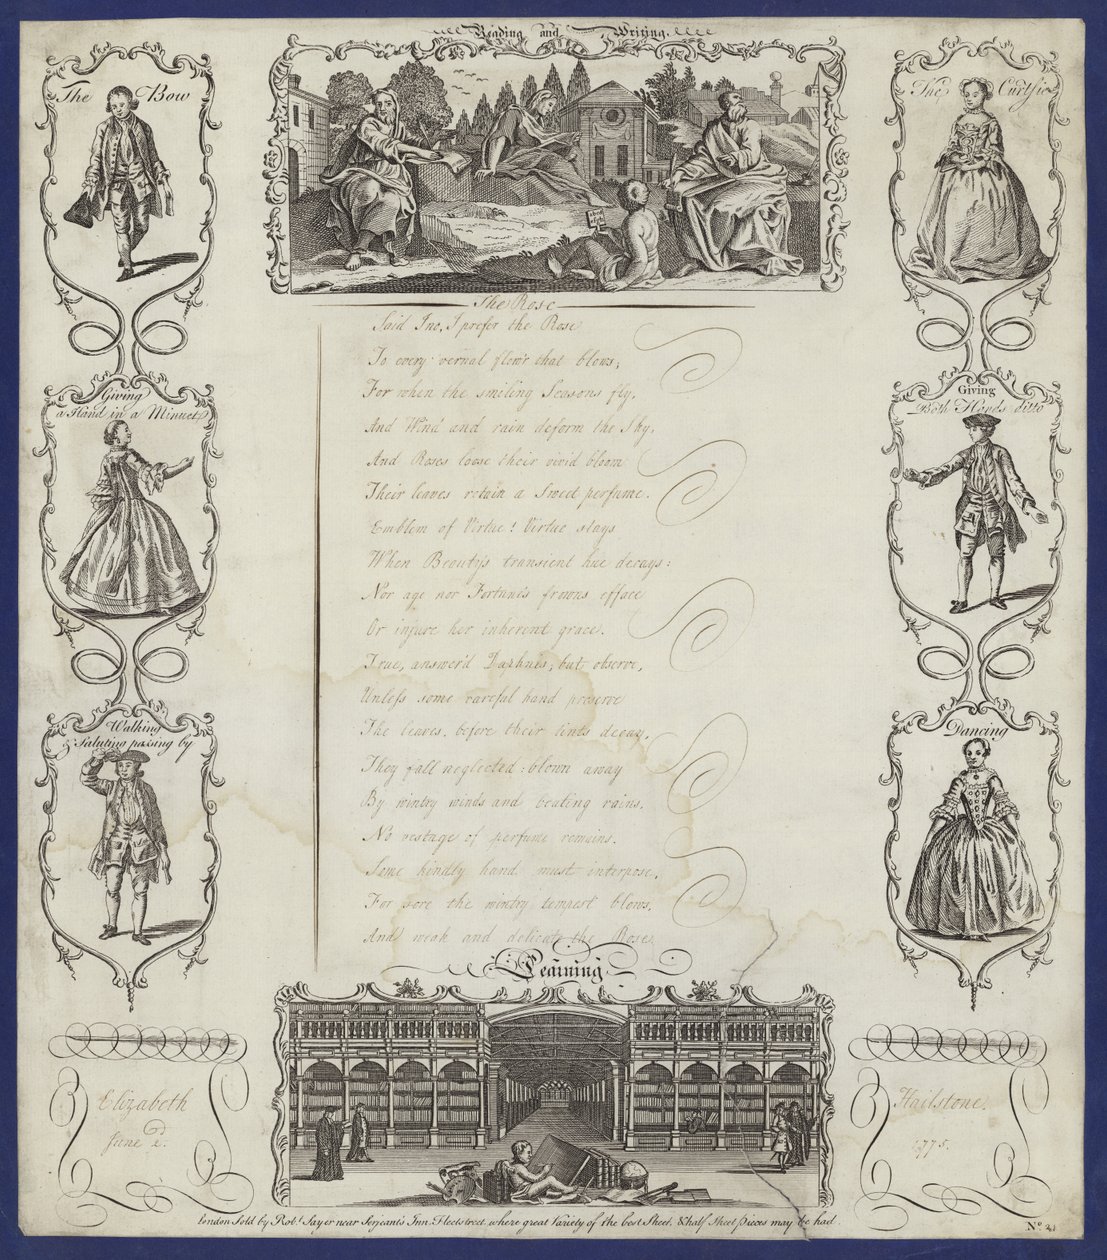 Reading and Writing.
The Bow
The Curtsie
Giving
a Hand in a Minuet
Giving
Both Hands ditto
Walking
& Saluting passing by
Dancing
The Rose
Said Ino, I prefer the Rose
To every vernal flow'r that blows;
For when the smiling Seasons fly,
And Wind and rain deform the Sky,
And Roses loose their vivid bloom
Their leaves retain a Sweet perfume.
Emblem of Virtue! Virtue stays
When Beauty's transient hue decays:
Nor age nor Fortune's frowns efface
Or injure her inherent grace.
True, answer'd Daphnis, but observe,
Unless some careful hand preserve
The leaves, before their tints decay,
They fall neglected: blown away
By wintry winds and beating rains,
No vestage of perfume remains.
Some kindly hand must interpose,
For sore the wintry tempest blows,
And weak and delicate the Roses.
Learning
Elizabeth
June 2d.
Hailstone.
1775.
London Sold by Robt. Sayer near Serjeants Inn Fleetstreet. where great Variety of the best Sheet, & half Sheet pieces may be had
No.